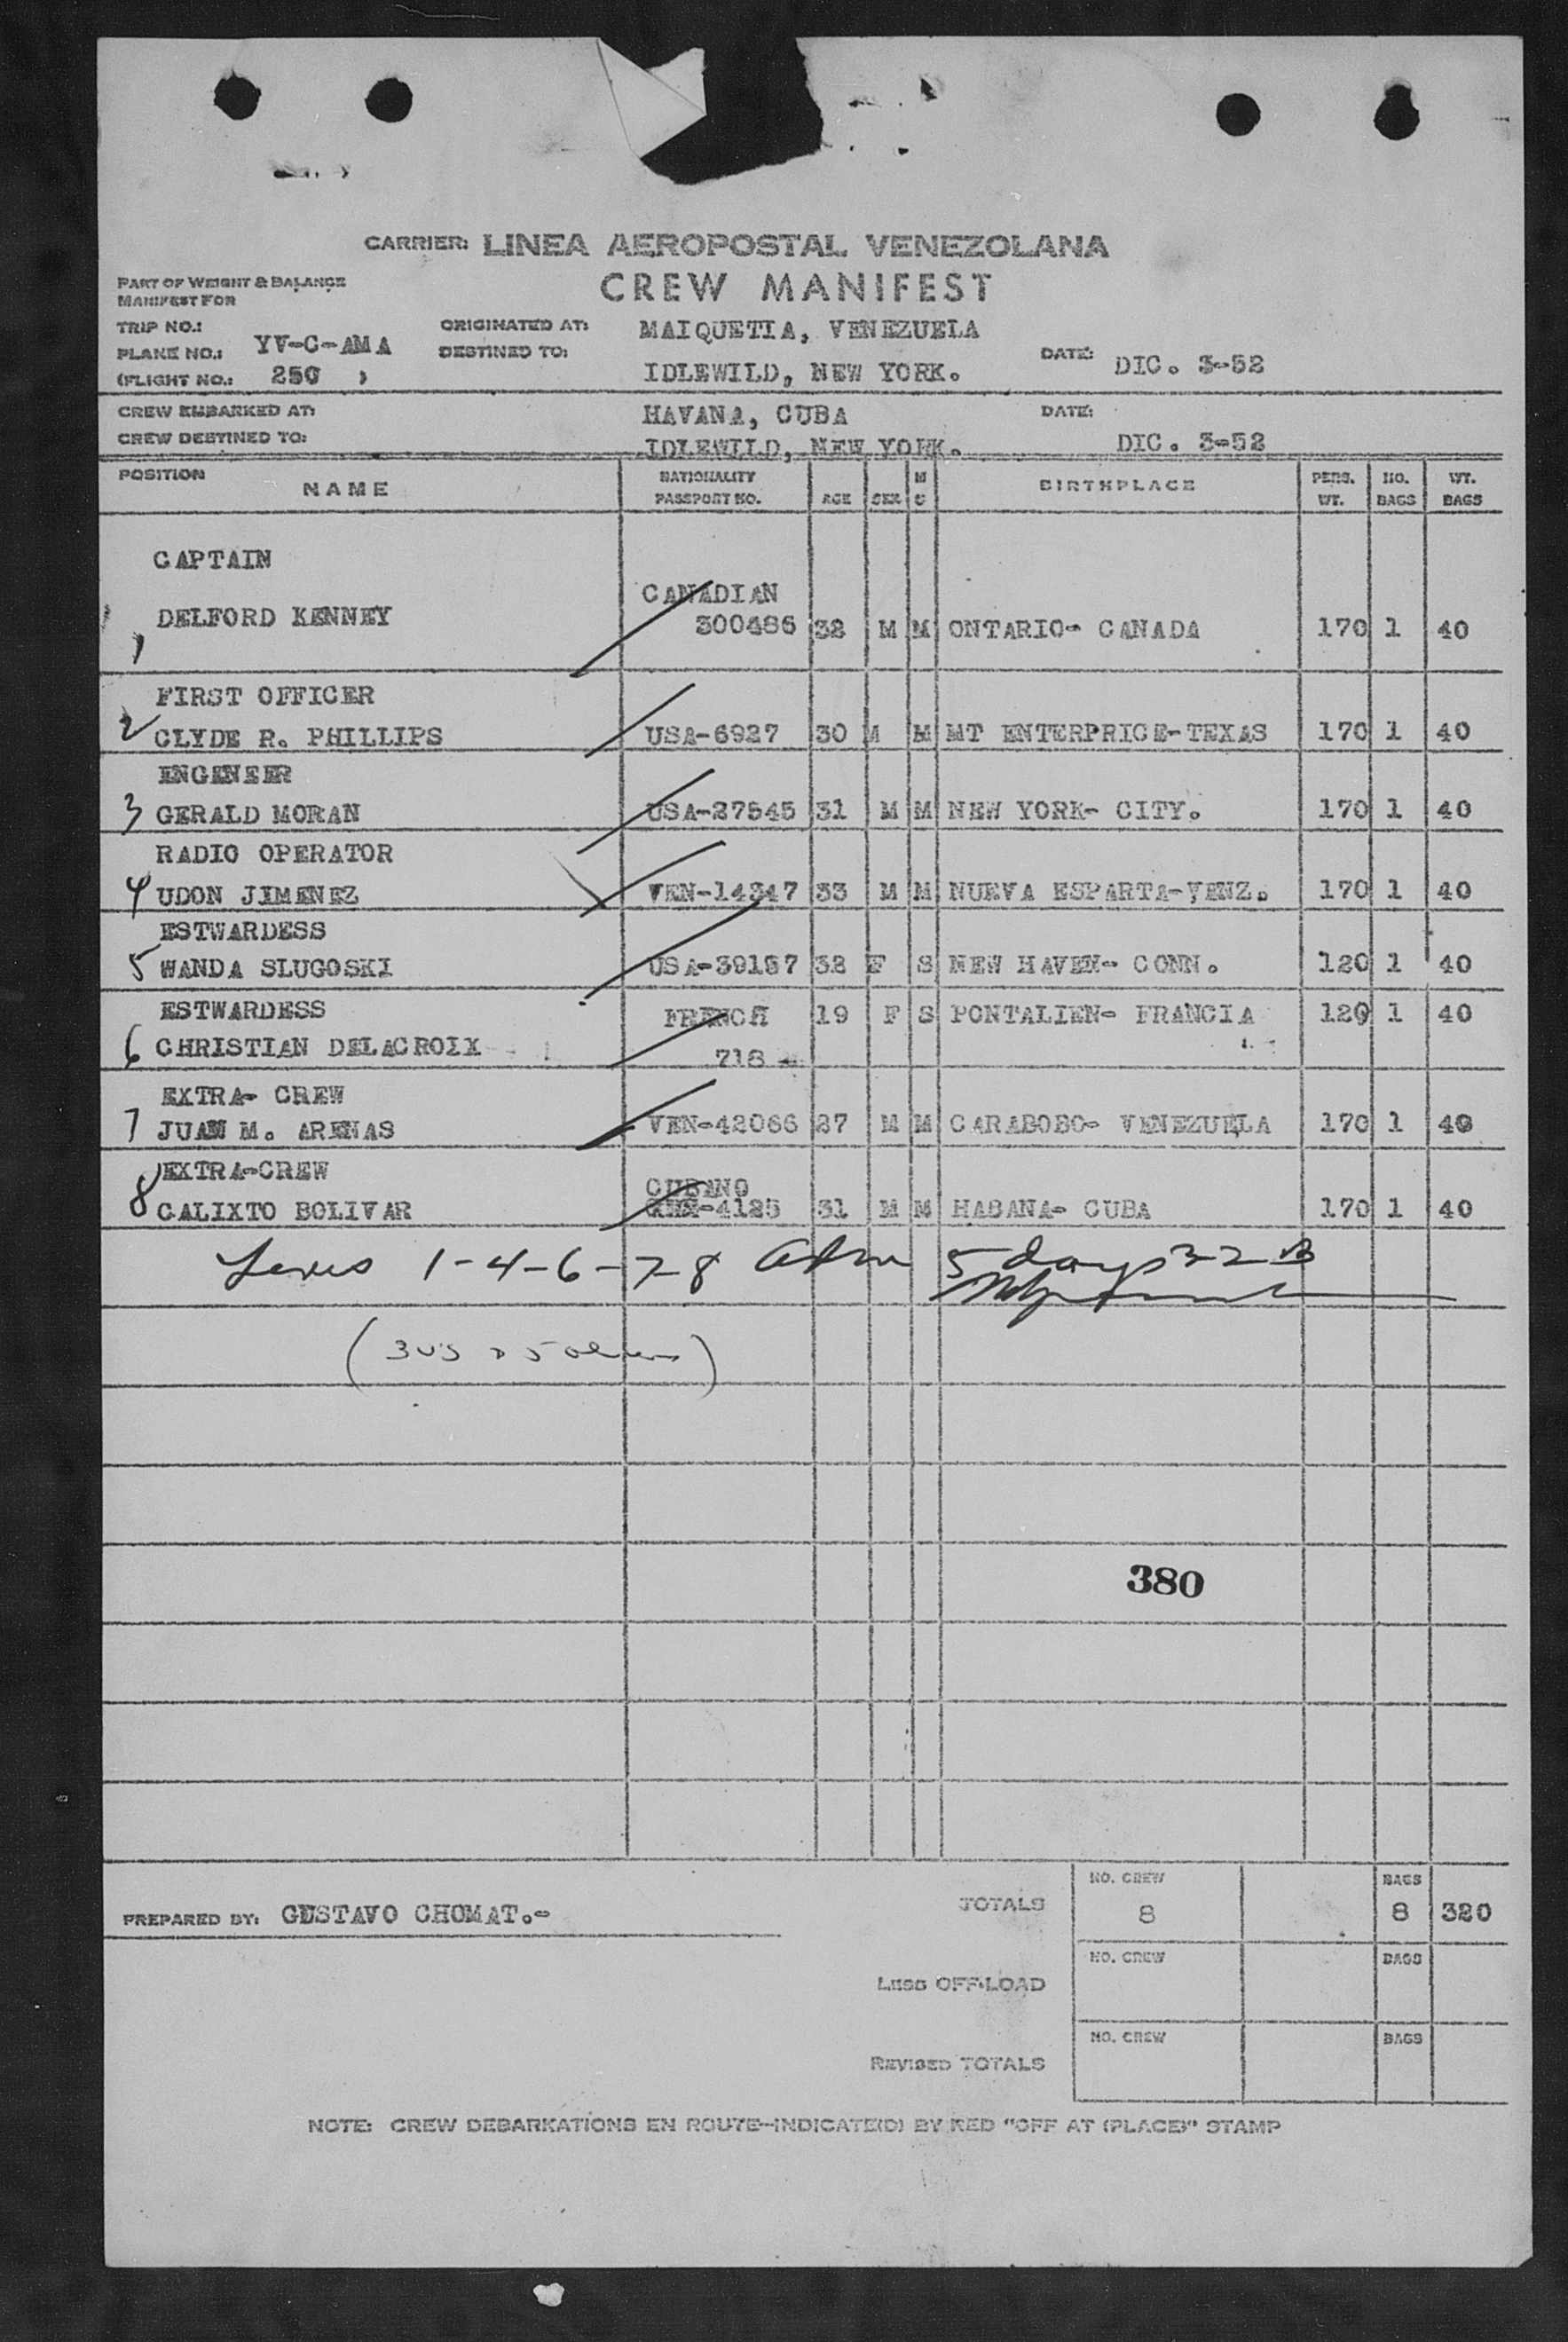 CARRIER: LINEA AEROPOSTAL VENEZOLANA
CREW MANIFEST
PART OF WEIGHT & BALANCE
MANIFEST FOR
TRIP NO.:
PLANE NO.: YV-C-AMA
(FLIGHT NO.: 250 )
ORIGINATED AT: MAIQUETIA, VENEZUELA
DESTINED TO: IDLEWILD, NEW YORK.
DATE: DIC. 3-52
CREW EMBARKED AT: HAVANA, CUBA DATE:
CREW DESTINED TO: IDLEWILD, NEW YORK. DIC. 3-52
POSITION NAME NATIONALITY PASSPORT NO. AGE SEX M S BIRTHPLACE PERS. WT. NO. BAGS WT. BAGS
CAPTAIN
CANADIAN
1 DELFORD KENNEY 300486 32 M M ONTARIO- CANADA 170 1 40
FIRST OFFICER
2 CLYDE R. PHILLIPS USA-6927 30 M M MT ENTERPRICE-TEXAS 170 1 40
ENGENEER
3 GERALD MORAN USA-27545 31 M M NEW YORK- CITY. 170 1 40
RADIO OPERATOR
4 UDON JIMENEZ VEN-14347 33 M M NUEVA ESPARTA-VENZ. 170 1 40
ESTWARDESS
5 WANDA SLUGOSKI USA-39157 32 F S NEW HAVEN- CONN. 120 1 40
ESTWARDESS FRENCH 19 F S PONTALIEN- FRANCIA 120 1 40
6 CHRISTIAN DELACROIX 718
EXTRA- CREW
7 JUAN M. ARENAS VEN-42066 27 M M CARABOBO- VENEZUELA 170 1 40
EXTRA-CREW CUBANO
8 CALIXTO BOLIVAR 4125 31 M M HABANA- CUBA 170 1 40
1-4-6-7-8 Adm 5 days
(3 US 5 )
380
PREPARED BY: GUSTAVO CHOMAT.-
TOTALS NO. CREW 8 BAGS 8 320
LESS OFF-LOAD NO. CREW BAGS
REVISED TOTALS NO. CREW BAGS
NOTE: CREW DEBARKATIONS EN ROUTE-INDICATE(D) BY RED "OFF AT (PLACE)" STAMP